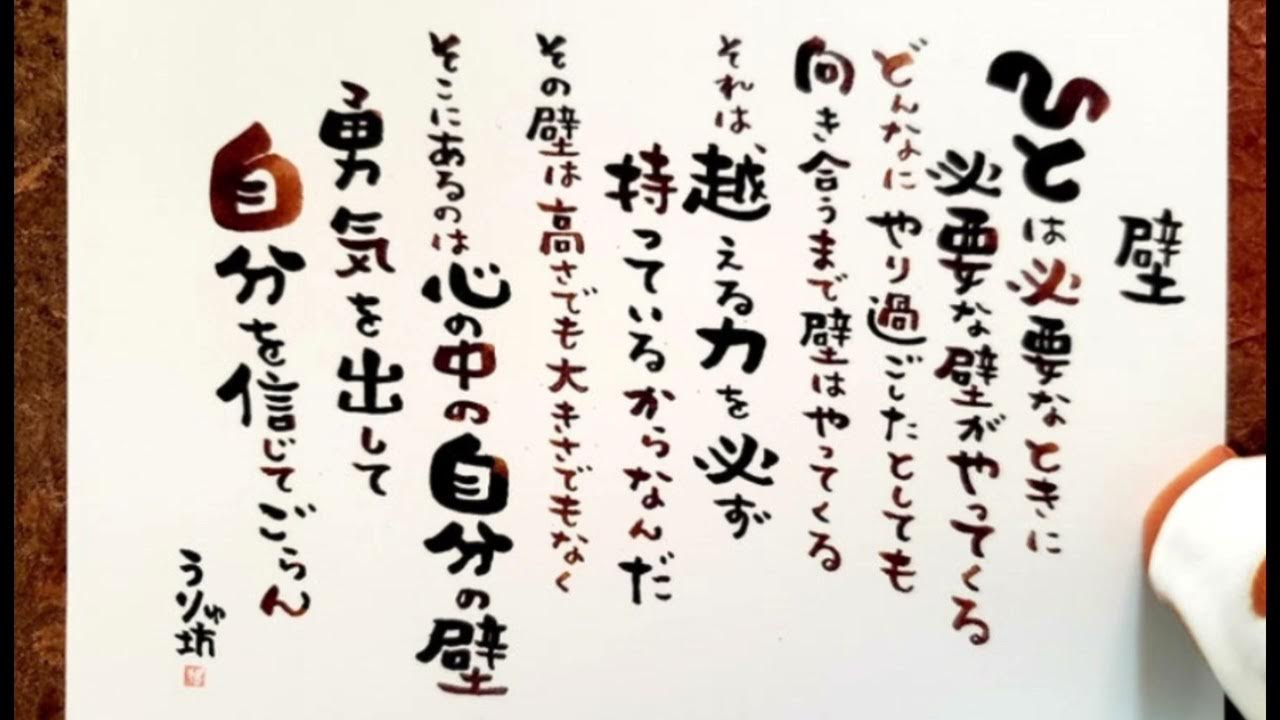 壁
ひとは必要なときに
必要な壁がやってくる
どんなにやり過ごしたとしても
向き合うまで壁はやってくる
それは、越える力を必ず
持っているからなんだ
その壁は高さでも大きさでもなく
そこにあるのは心の中の自分の壁
勇気を出して
自分を信じてごらん
うりゅ坊